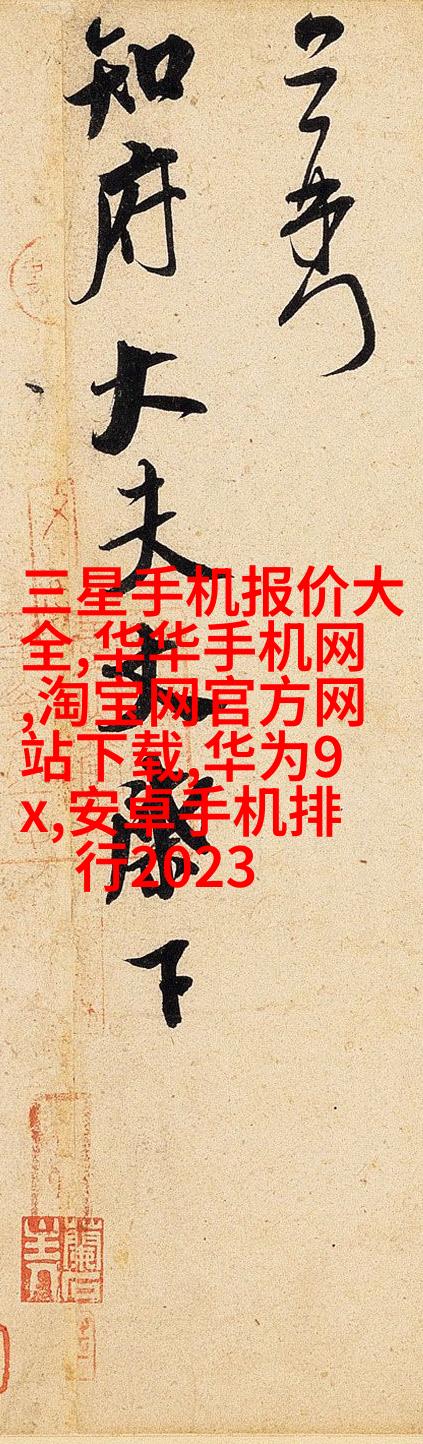 知府大夫丈下
三星手机报价大
全,华华手机网
,淘宝网官方网
站下载,华为9
x,安卓手机排
行2023